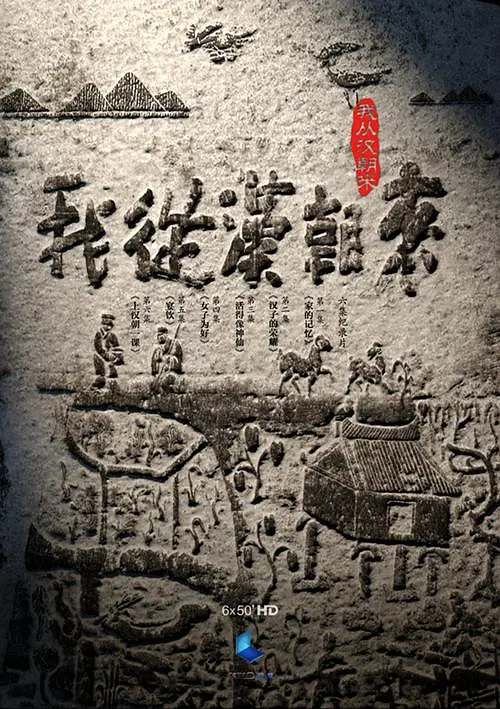 我从汉朝来
我從漢朝來
六集纪录片
第一集
《家的记忆》
第二集
《汉子的荣耀》
第三集
《活得像神仙》
第四集
《女子为好》
第五集
《宴饮》
第六集
《上汉朝一课》
6×50'HD